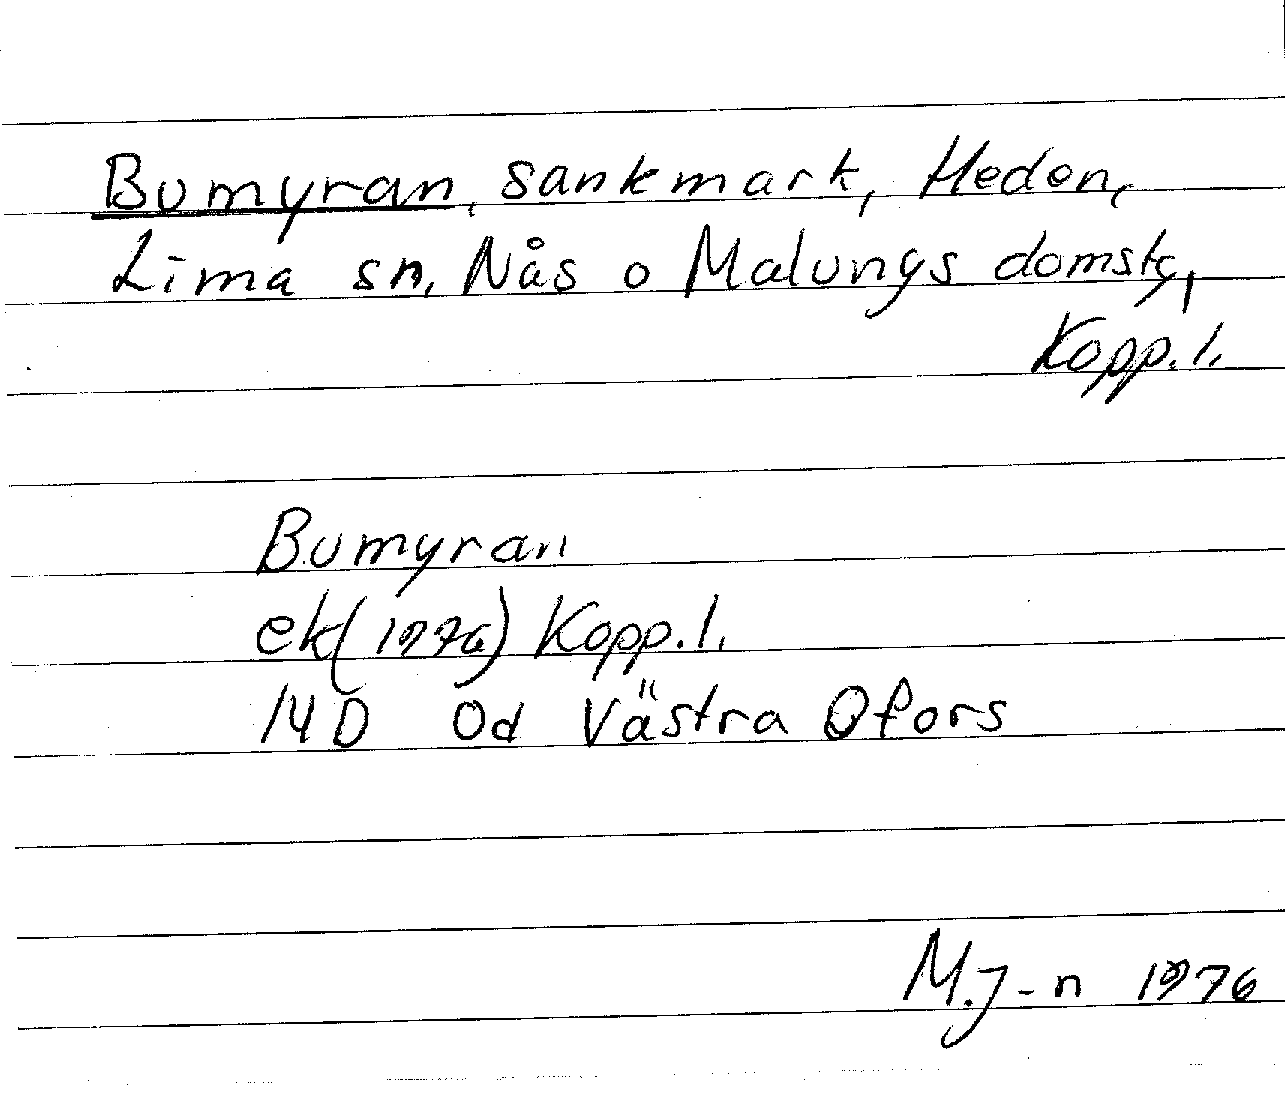 Bumyran, sankmark, Heden,
Lima sn, Nås o Malungs domsg,
Kopp. l.
Bumyran
ek(1976) Kopp. l.
14D 0d Västra Ofors
M.J-n 1976